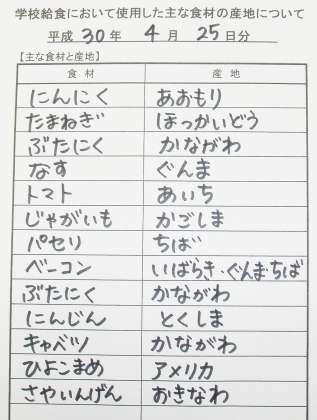 学校給食において使用した主な食材の産地について
平成 30 年 4 月 25 日分
【主な食材と産地】
食材 産地
にんにく あおもり
たまねぎ ほっかいどう
ぶたにく かながわ
なす ぐんま
トマト あいち
じゃがいも かごしま
パセリ ちば
ベーコン いばらき・ぐんま・ちば
ぶたにく かながわ
にんじん とくしま
キャベツ かながわ
ひよこまめ アメリカ
さやいんげん おきなわ